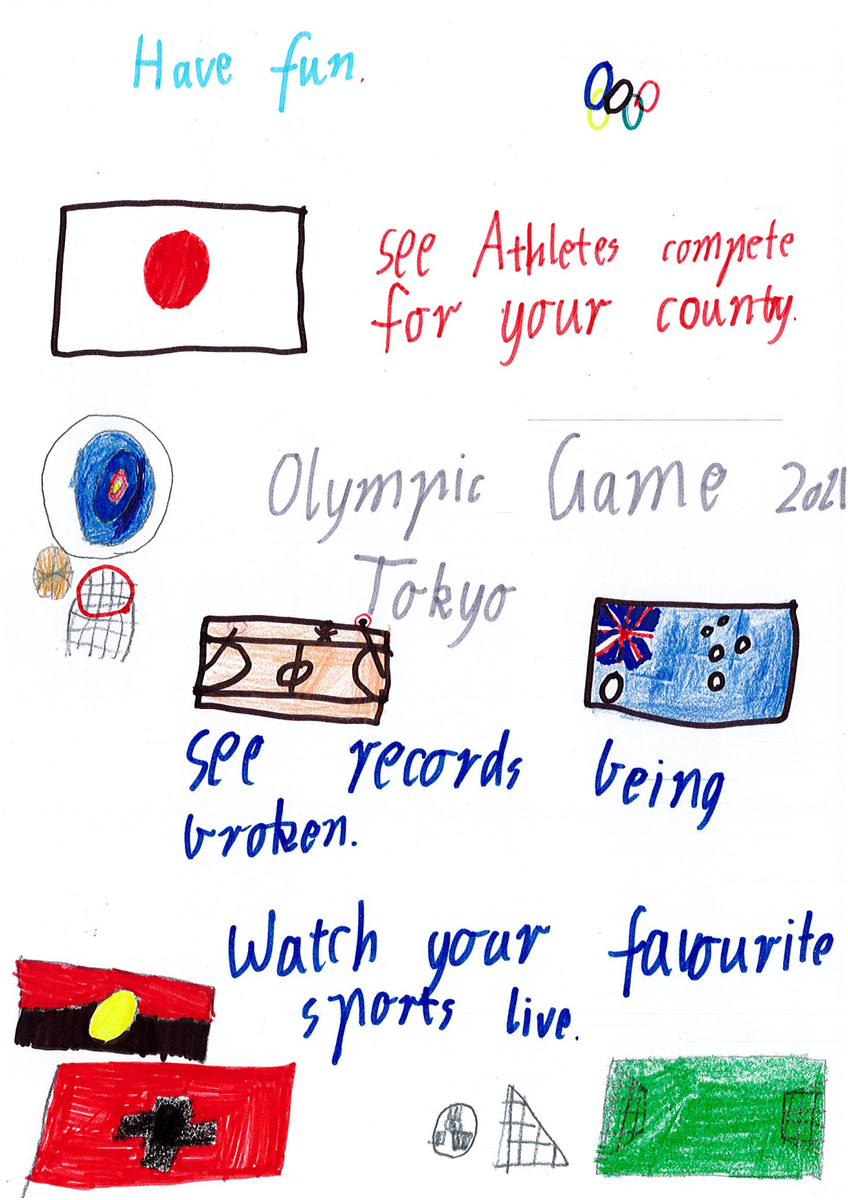 Have fun.
see Athletes compete
for your county.
Olympic Game 2021
Tokyo
see records being
broken.
Watch your favourite
sports live.